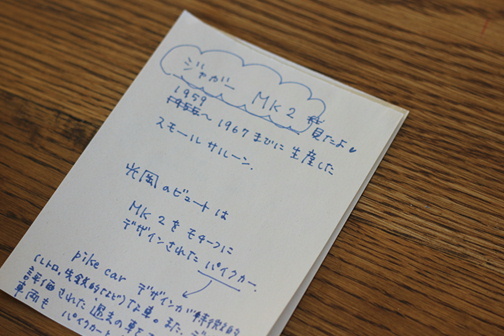 ジャガー MK2 を見たよ。
1959
1955〜1967までに生産した
スモールサルーン。
光岡のビュートは
MK2をモチーフに
デザインされたパイクカー。
pike car デザインが特徴的
(レトロ,先鋭的など)な車。また、デ
評価された過去の車を
車両も パイクカー